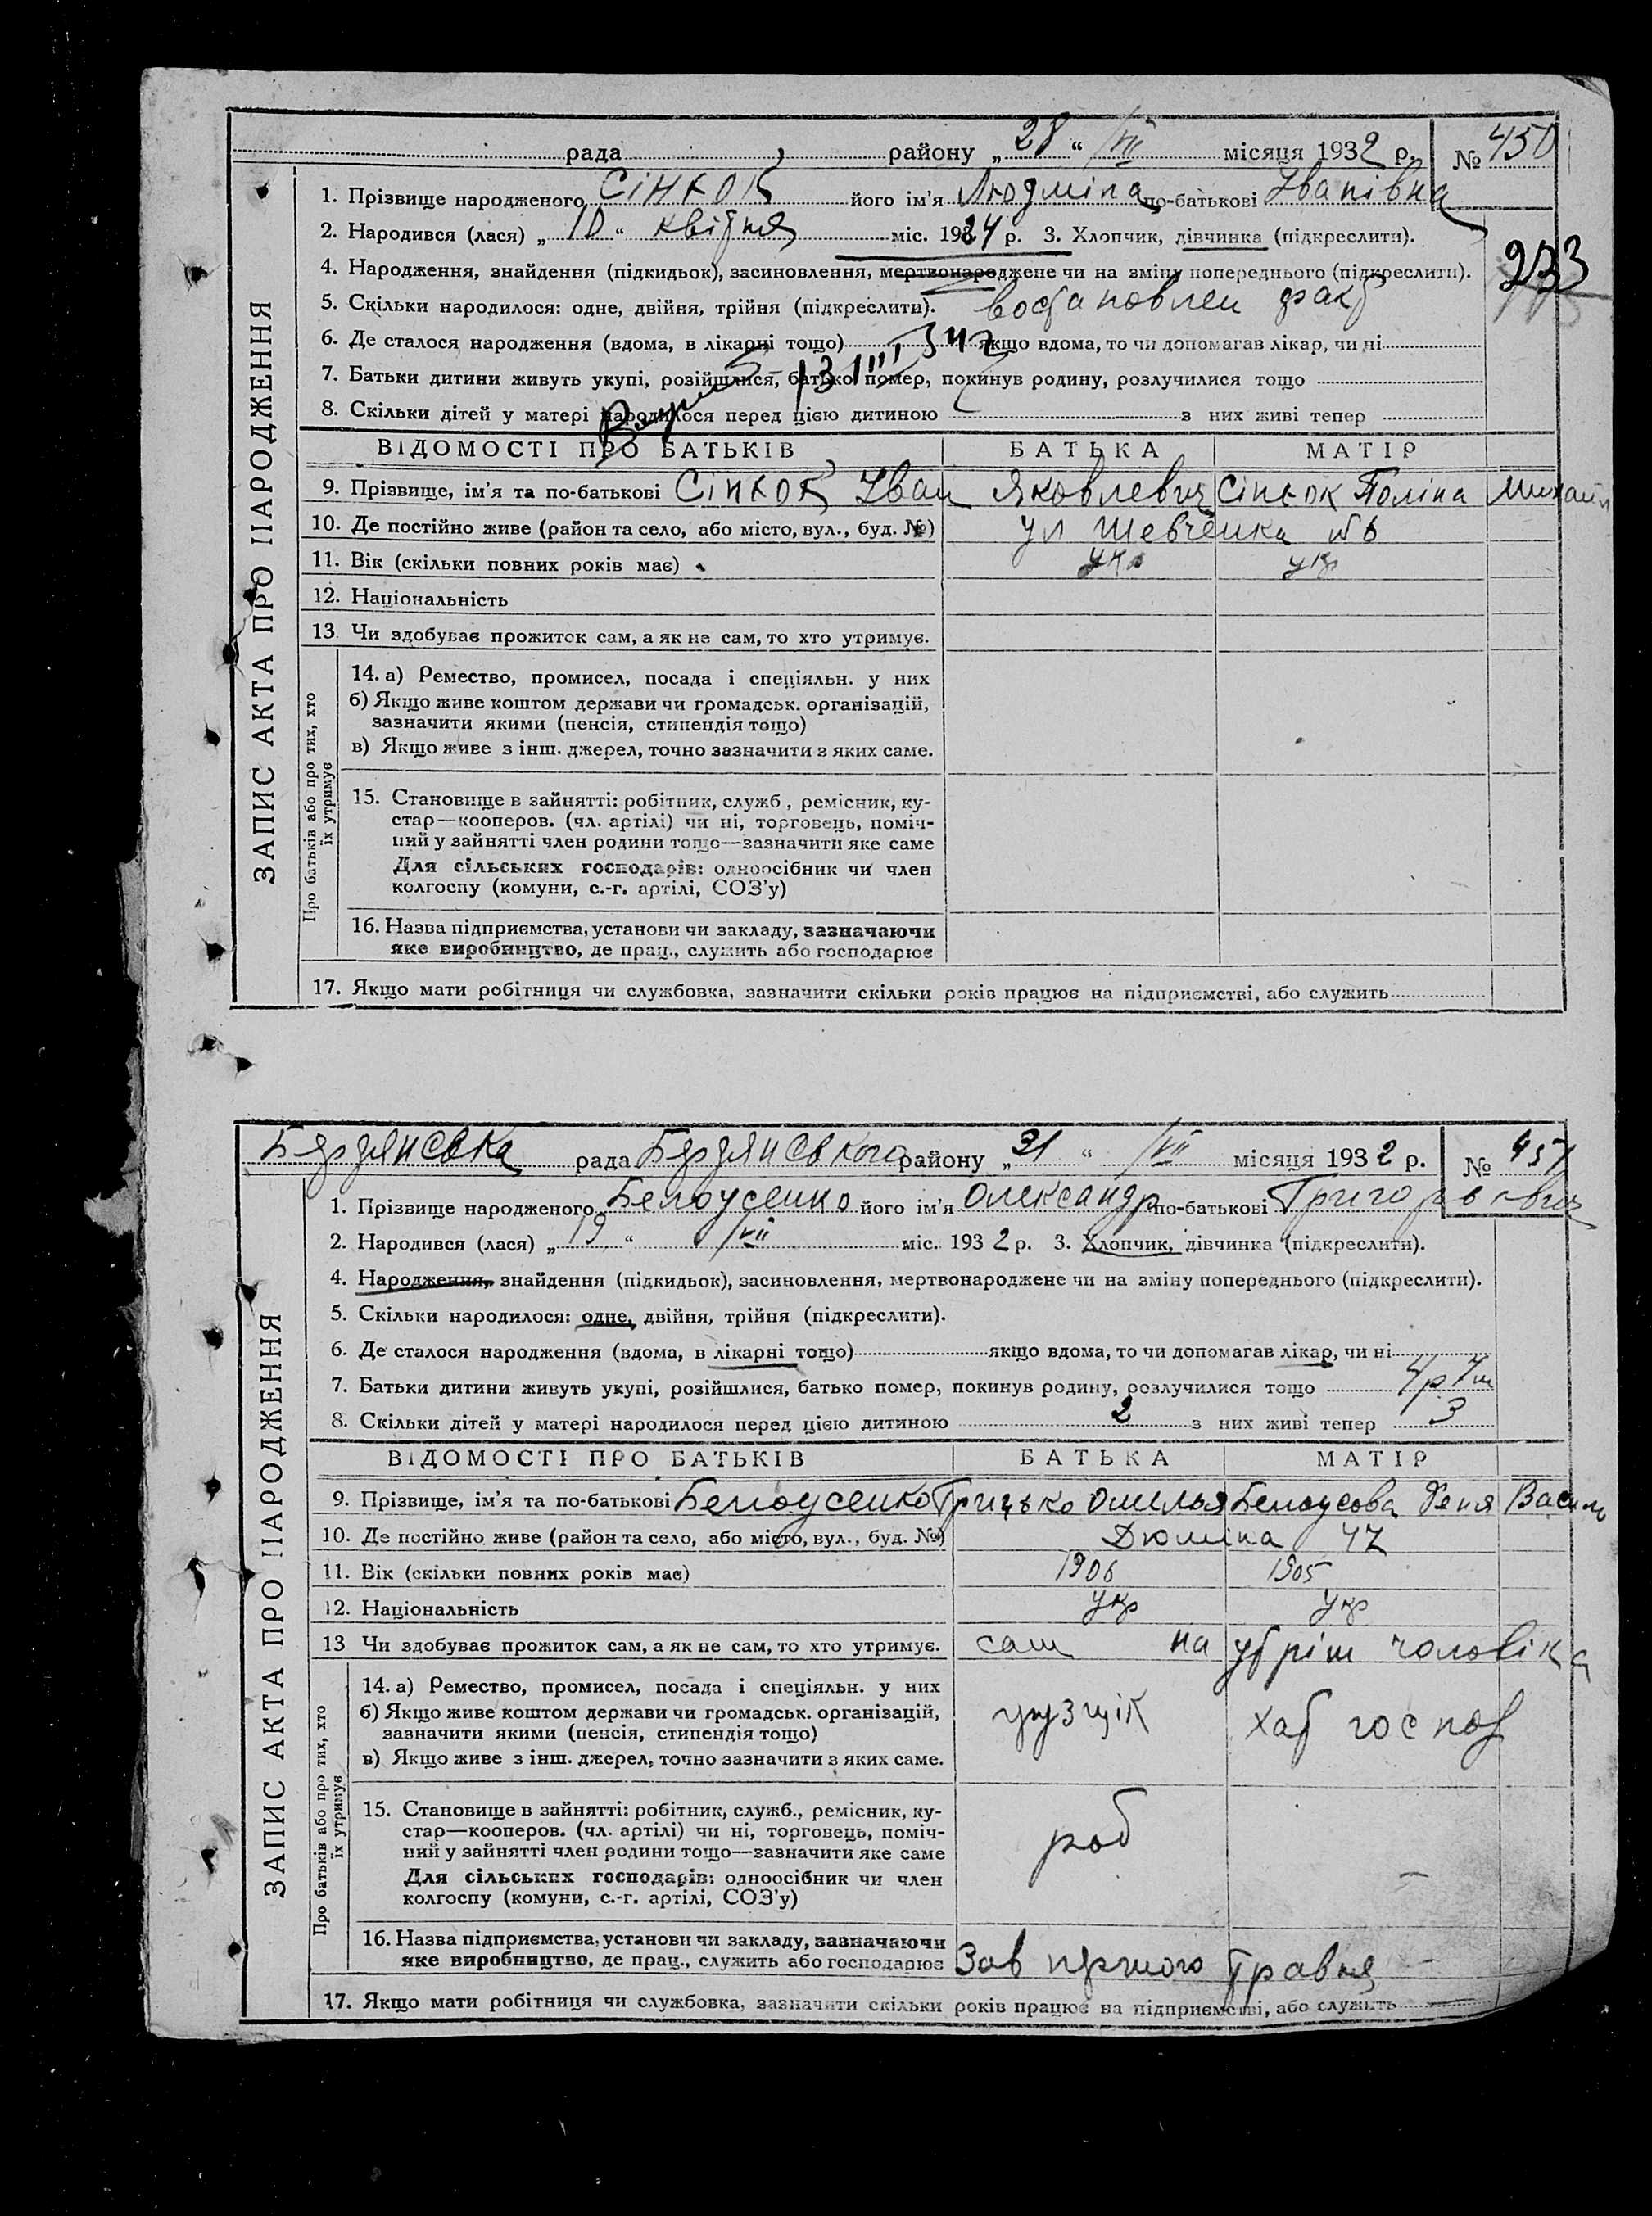 рада району „28“ VII місяця 1932 р. № 450
1. Прізвище народженого Сінкок його ім'я Людміла по-батькові Іванівна
2. Народився (лася) „10“ квітня міс. 1924 р. 3. Хлопчик, дівчинка (підкреслити).
4. Народження, знайдення (підкидьок), засиновлення, мертвонароджене чи на зміну попереднього (підкреслити).
933
5. Скільки народилося: одне, двійня, трійня (підкреслити). востановлен факт
6. Де сталося народження (вдома, в лікарні тощо) якщо вдома, то чи допомагав лікар, чи ні
7. Батьки дитини живуть укупі, розійшлися, батько помер, покинув родину, розлучилися тощо
8. Скільки дітей у матері народилося перед цією дитиною з них живі тепер
ВІДОМОСТІ ПРО БАТЬКІВ БАТЬКА МАТІР
9. Прізвище, ім'я та по-батькові Сінкок Іван Яковлевич Сінкок Поліна Михайл
10. Де постійно живе (район та село, або місто, вул., буд. №) ул Шевченка №6
11. Вік (скільки повних років має) укр укр
12. Національність
13. Чи здобував прожиток сам, а як не сам, то хто утримує.
14. а) Ремество, промисел, посада і спеціяльн. у них
б) Якщо живе коштом держави чи громадськ. організацій,
зазначити якими (пенсія, стипендія тощо)
в) Якщо живе з інш. джерел, точно зазначити з яких саме.
15. Становище в зайнятті: робітник, служб., ремісник, ку-
стар—кооперов. (чл. артілі) чи ні, торговець, поміч-
ний у зайнятті член родини тощо—зазначити яке саме
Для сільських господарів: одноосібник чи член
колгоспу (комуни, с.-г. артілі, СОЗ'у)
16. Назва підприємства, установи чи закладу, зазначаючи
яке виробництво, де прац., служить або господарює
17. Якщо мати робітниця чи службовка, зазначити скільки років працює на підприємстві, або служить
ЗАПИС АКТА ПРО НАРОДЖЕННЯ
Про батьків або про тих, хто
їх утримує
Бердянська рада Бердянського району „31“ VII місяця 1932 р. № 451
1. Прізвище народженого Белоусенко його ім'я Олександр по-батькові Григорович
2. Народився (лася) „19“ VII міс. 1932 р. 3. Хлопчик, дівчинка (підкреслити).
4. Народження, знайдення (підкидьок), засиновлення, мертвонароджене чи на зміну попереднього (підкреслити).
5. Скільки народилося: одне, двійня, трійня (підкреслити).
6. Де сталося народження (вдома, в лікарні тощо) якщо вдома, то чи допомагав лікар, чи ні
7. Батьки дитини живуть укупі, розійшлися, батько помер, покинув родину, розлучилися тощо 4р 7м
8. Скільки дітей у матері народилося перед цією дитиною 2 з них живі тепер 3
ВІДОМОСТІ ПРО БАТЬКІВ БАТЬКА МАТІР
9. Прізвище, ім'я та по-батькові Белоусенко Грицько Омелья Белоусова Феня Василь
10. Де постійно живе (район та село, або місто, вул., буд. №) Дюміна 47
11. Вік (скільки повних років має) 1906 1905
12. Національність укр укр
13 Чи здобував прожиток сам, а як не сам, то хто утримує. сам на утрім чоловіка
14. а) Ремество, промисел, посада і спеціяльн. у них
б) Якщо живе коштом держави чи громадськ. організацій,
зазначити якими (пенсія, стипендія тощо)
в) Якщо живе з інш. джерел, точно зазначити з яких саме.
грузщік хат господ
15. Становище в зайнятті: робітник, служб., ремісник, ку-
стар—кооперов. (чл. артілі) чи ні, торговець, поміч-
ний у зайнятті член родини тощо—зазначити яке саме
Для сільських господарів: одноосібник чи член
колгоспу (комуни, с.-г. артілі, СОЗ'у)
роб
16. Назва підприємства, установи чи закладу, зазначаючи
яке виробництво, де прац., служить або господарює Зав першого травня
17. Якщо мати робітниця чи службовка, зазначити скільки років працює на підприємстві, або служить
ЗАПИС АКТА ПРО НАРОДЖЕННЯ
Про батьків або про тих, хто
їх утримує